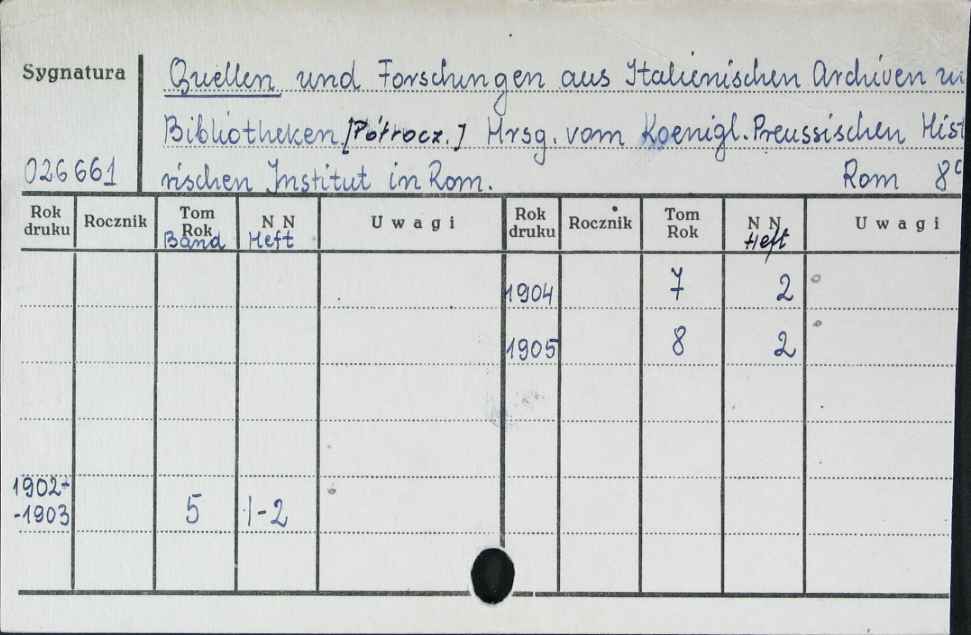 Sygnatura
Quellen und Forschungen aus Italienischen Archiven u
Bibliotheken [Półrocz.] Hrsg. vom Koenigl. Preussischen Hist
026661
rischen Institut in Rom. Rom 8°
Rok druku Rocznik Tom Rok Band N N Heft Uwagi Rok druku Rocznik Tom Rok N N Heft Uwagi
1904 7 2
1905 8 2
1902-
-1903 5 1-2